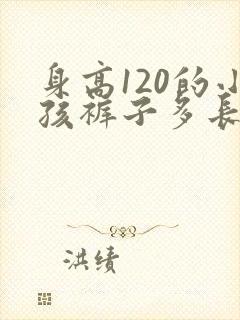 身高120的小
孩裤子多長
洪绩